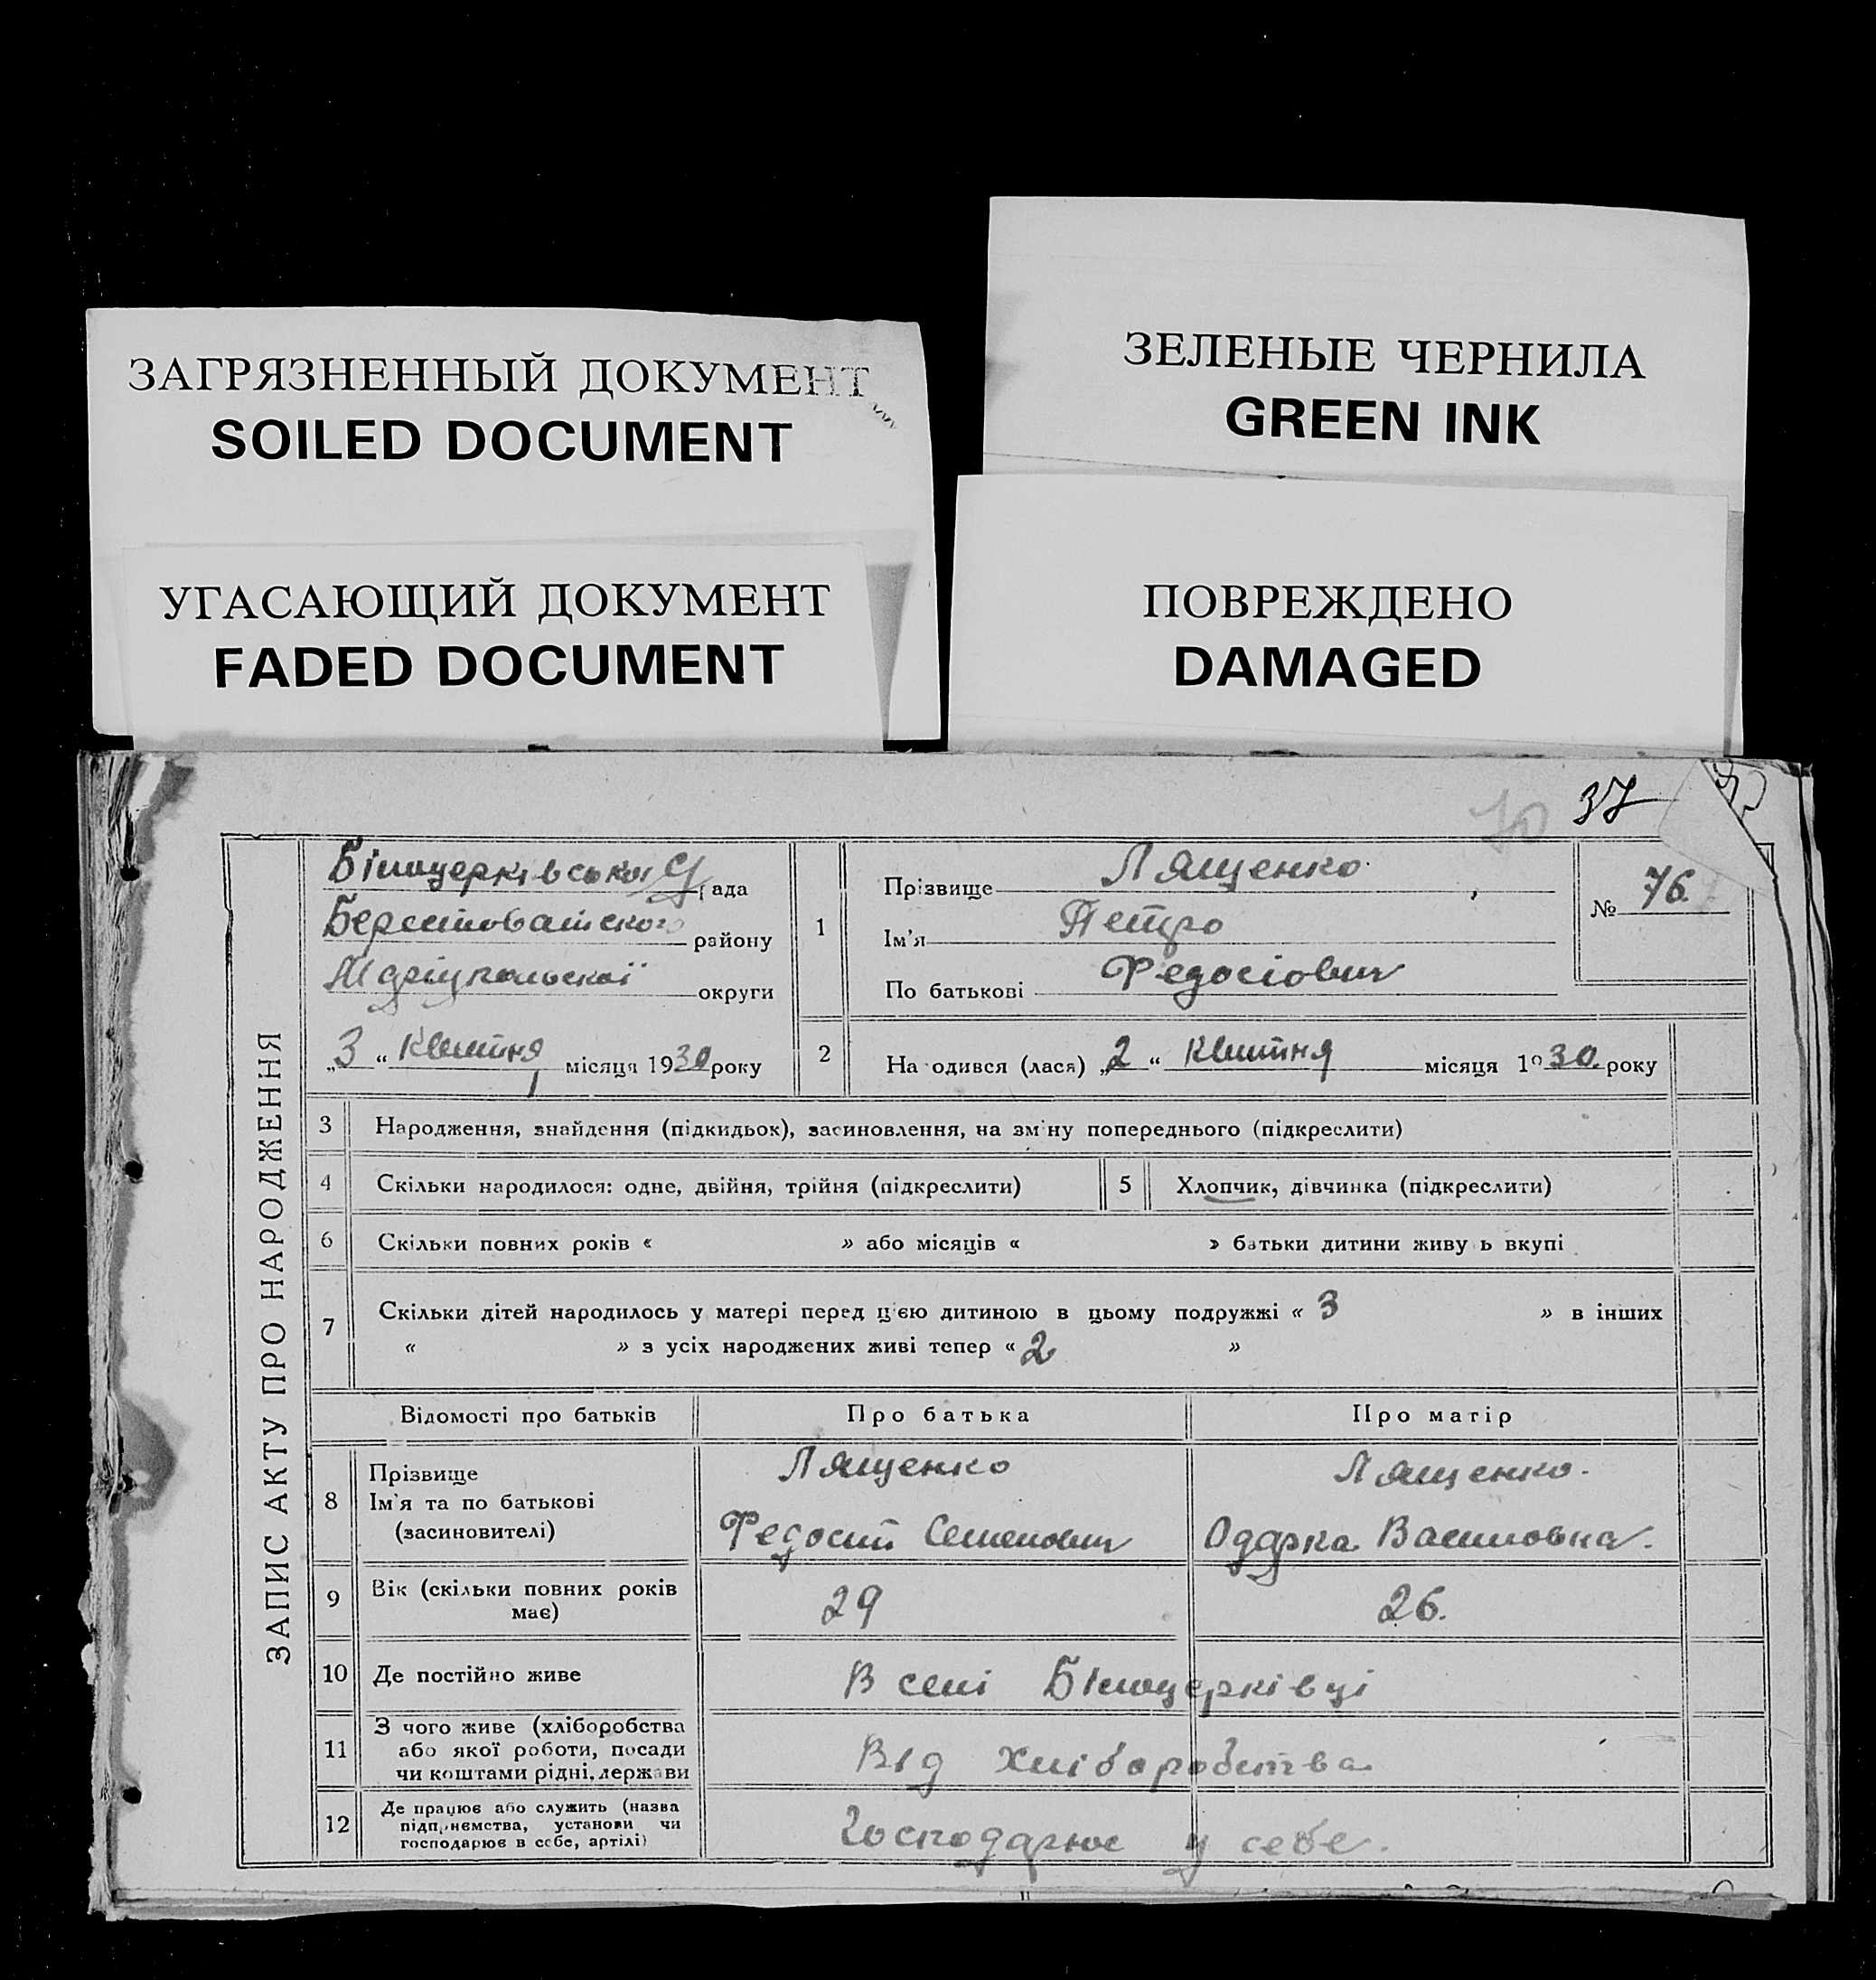 ЗАГРЯЗНЕННЫЙ ДОКУМЕНТ
SOILED DOCUMENT
ЗЕЛЕНЫЕ ЧЕРНИЛА
GREEN INK
УГАСАЮЩИЙ ДОКУМЕНТ
FADED DOCUMENT
ПОВРЕЖДЕНО
DAMAGED
70 37
ЗАПИС АКТУ ПРО НАРОДЖЕННЯ
Білоцерківської С/рада
Берестоватского району
Маріупольскої округи
„3“ Квітня місяця 1930 року
1 Прізвище Лященко
Ім'я Петро
По батькові Федосіович
№ 76.
2 Народився (лася) „2“ Квітня місяця 1930. року
3 Народження, знайдення (підкидьок), засиновлення, на зміну попереднього (підкреслити)
4 Скільки народилося: одне, двійня, трійня (підкреслити)
5 Хлопчик, дівчинка (підкреслити)
6 Скільки повних років « » або місяців « » батьки дитини живуть вкупі
7 Скільки дітей народилось у матері перед цією дитиною в цьому подружжі « 3 » в інших
« » з усіх народжених живі тепер « 2 »
Відомості про батьків Про батька Про матір
8 Прізвище
Ім'я та по батькові
(засиновителі)
Лященко
Федосий Семенович
Лященко.
Одарка Василовна.
9 Вік (скільки повних років
має)
29 26.
10 Де постійно живе В селі Білоцерківці
11 З чого живе (хліборобства
або якої роботи, посади
чи коштами рідні, держави
Від хліборобства
12 Де працює або служить (назва
підприємства, установи чи
господарює в себе, артілі)
Господарює у себе.